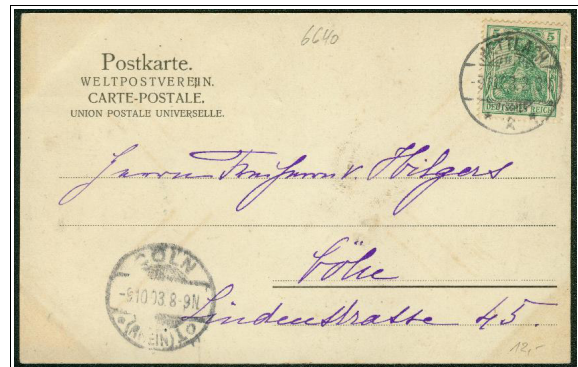 6640
Postkarte.
WELTPOSTVEREIN.
CARTE-POSTALE.
UNION POSTALE UNIVERSELLE.
5 5
METTLACH
DEUTSCHES REICH
Herrn Freiherrn v. Hilgers
Cöln
Lindenstrasse 45.
CÖLN
-9.10.03.8-9N
(RHEIN)
12,-